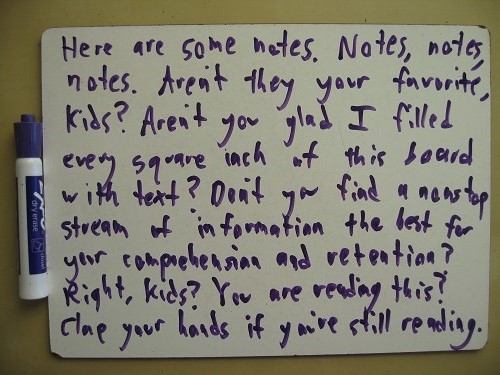 Here are some notes. Notes, notes,
notes. Aren't they your favorite,
kids? Aren't you glad I filled
every square inch of this board
with text? Don't you find a nonstop
stream of information the best for
your comprehension and retention?
Right, kids? You are reading this?
Clap your hands if you're still reading.
EXPO
dry erase